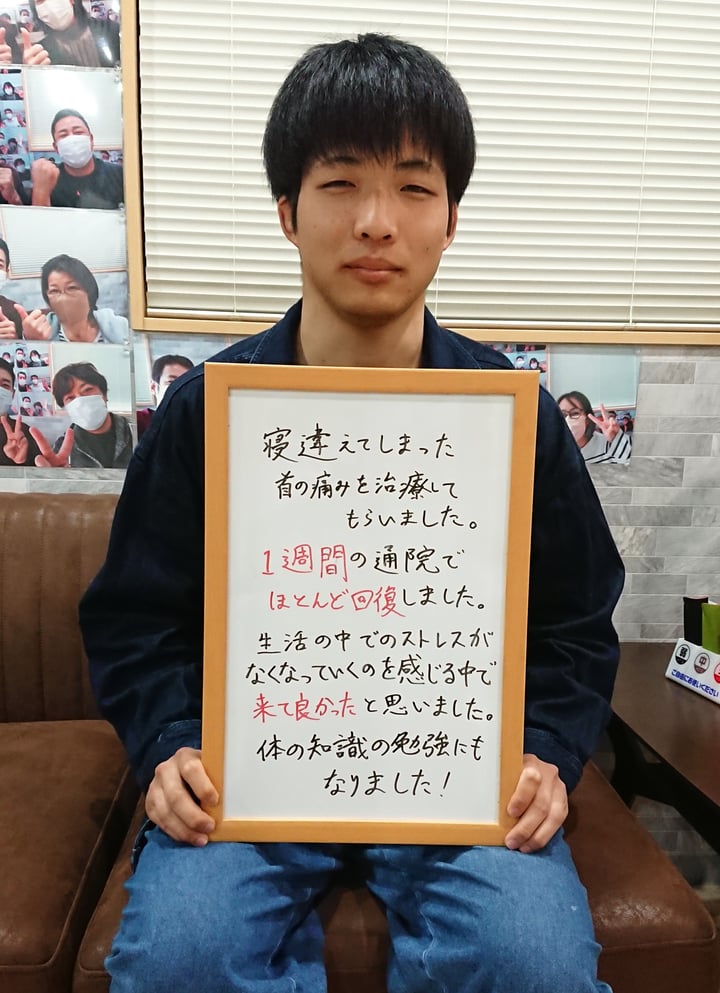 寝違えてしまった
首の痛みを治療して
もらいました。
1週間の通院で
ほとんど回復しました。
生活の中でのストレスが
なくなっていくのを感じる中で
来て良かったと思いました。
体の知識の勉強にも
なりました!
中
ご自由にお使いください